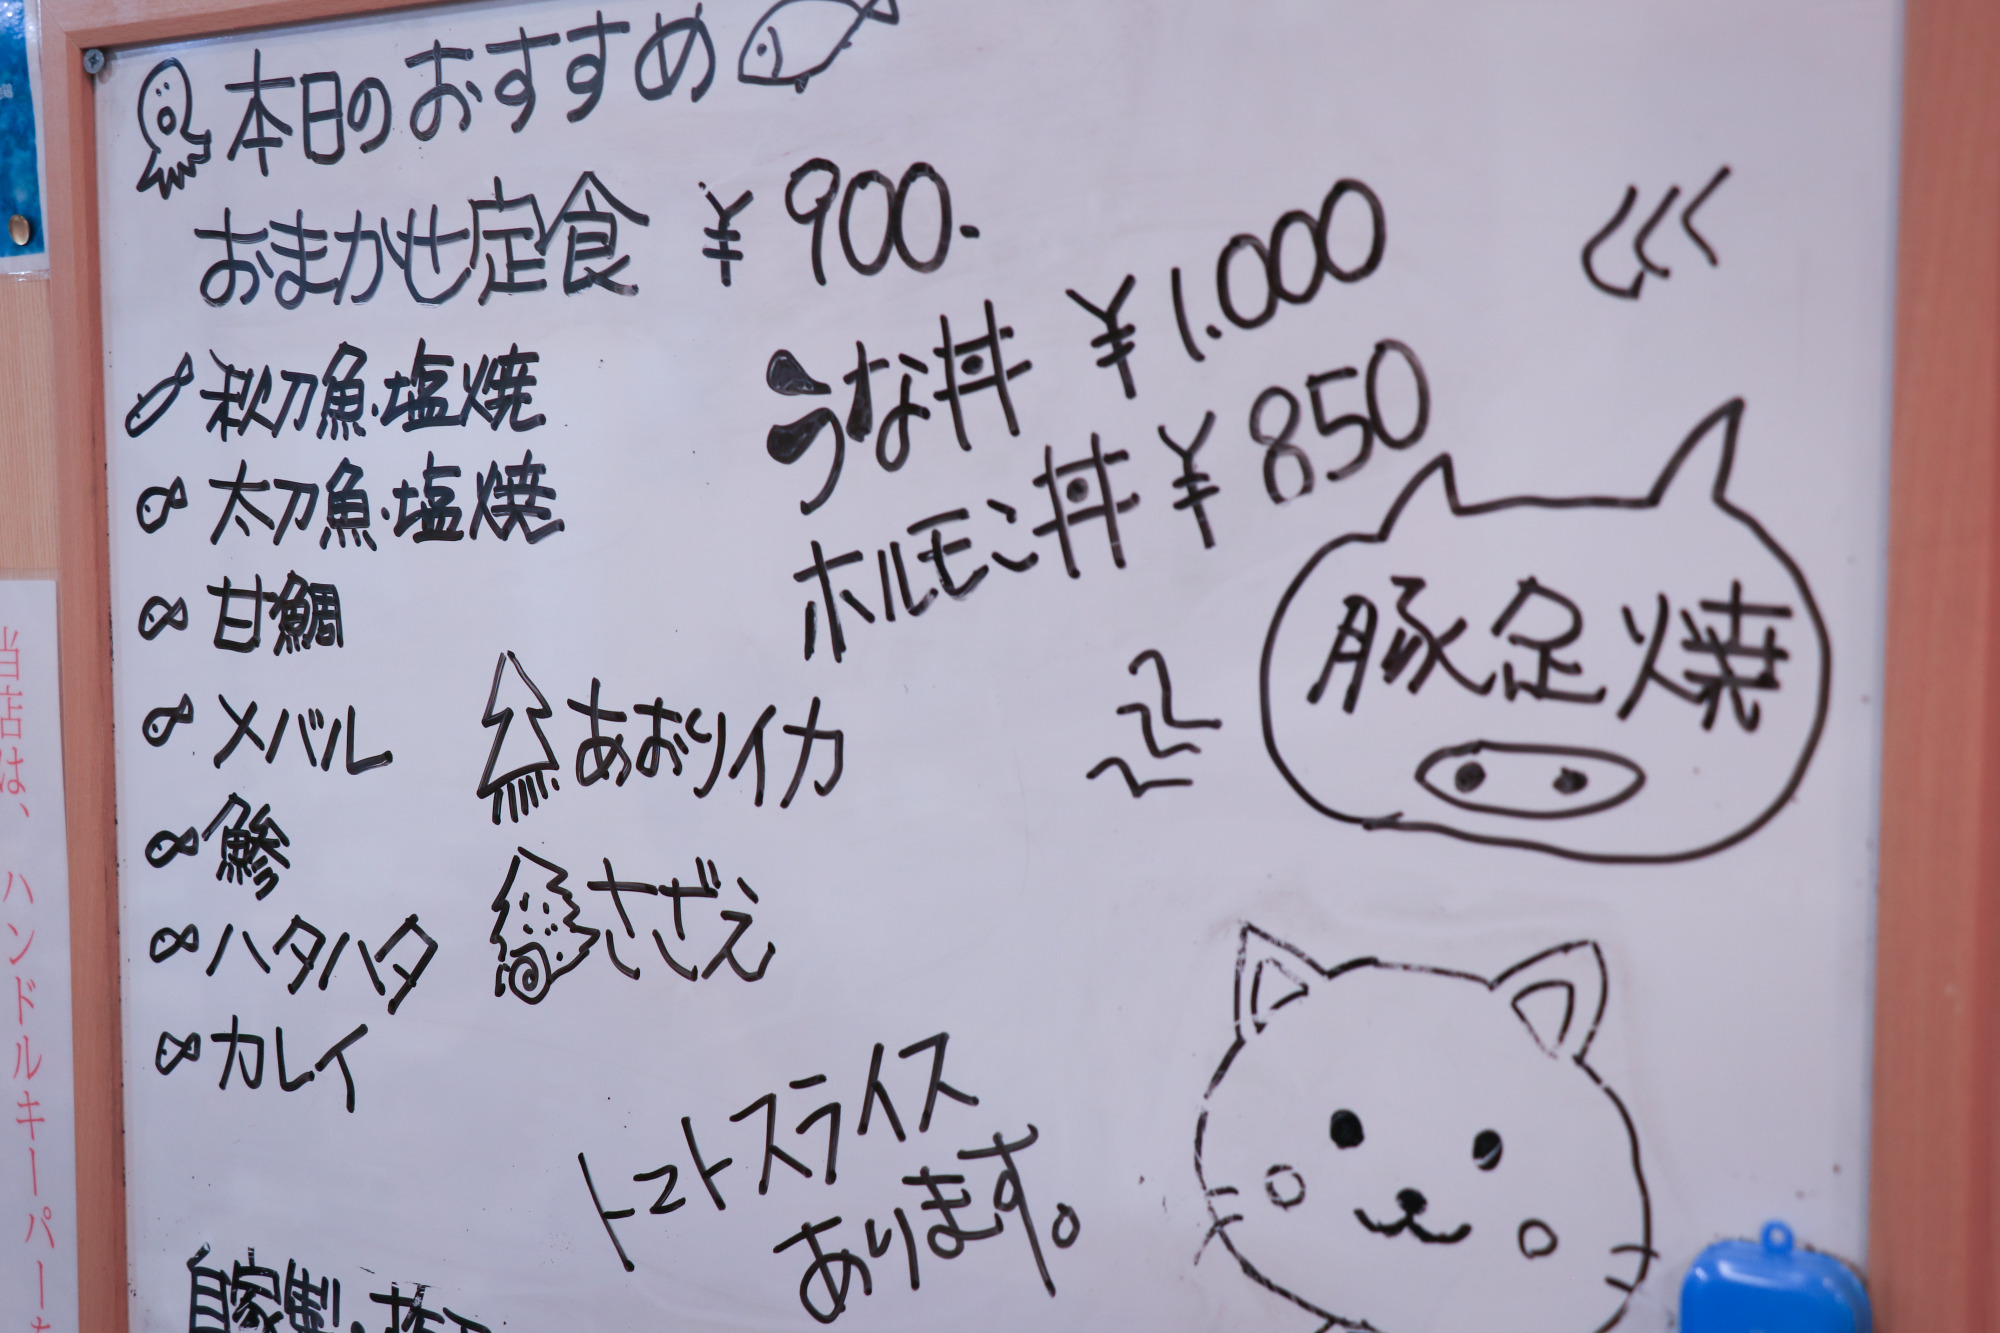 本日のおすすめ
おまかせ定食 ¥900.
うな丼 ¥1.000
ホルモン丼 ¥850
秋刀魚・塩焼
太刀魚・塩焼
甘鯛
メバル
鯵
ハタハタ
カレイ
あおりイカ
さざえ
豚足焼
トマトスライス
あります。
自家製・
当店は、ハンドルキーパー